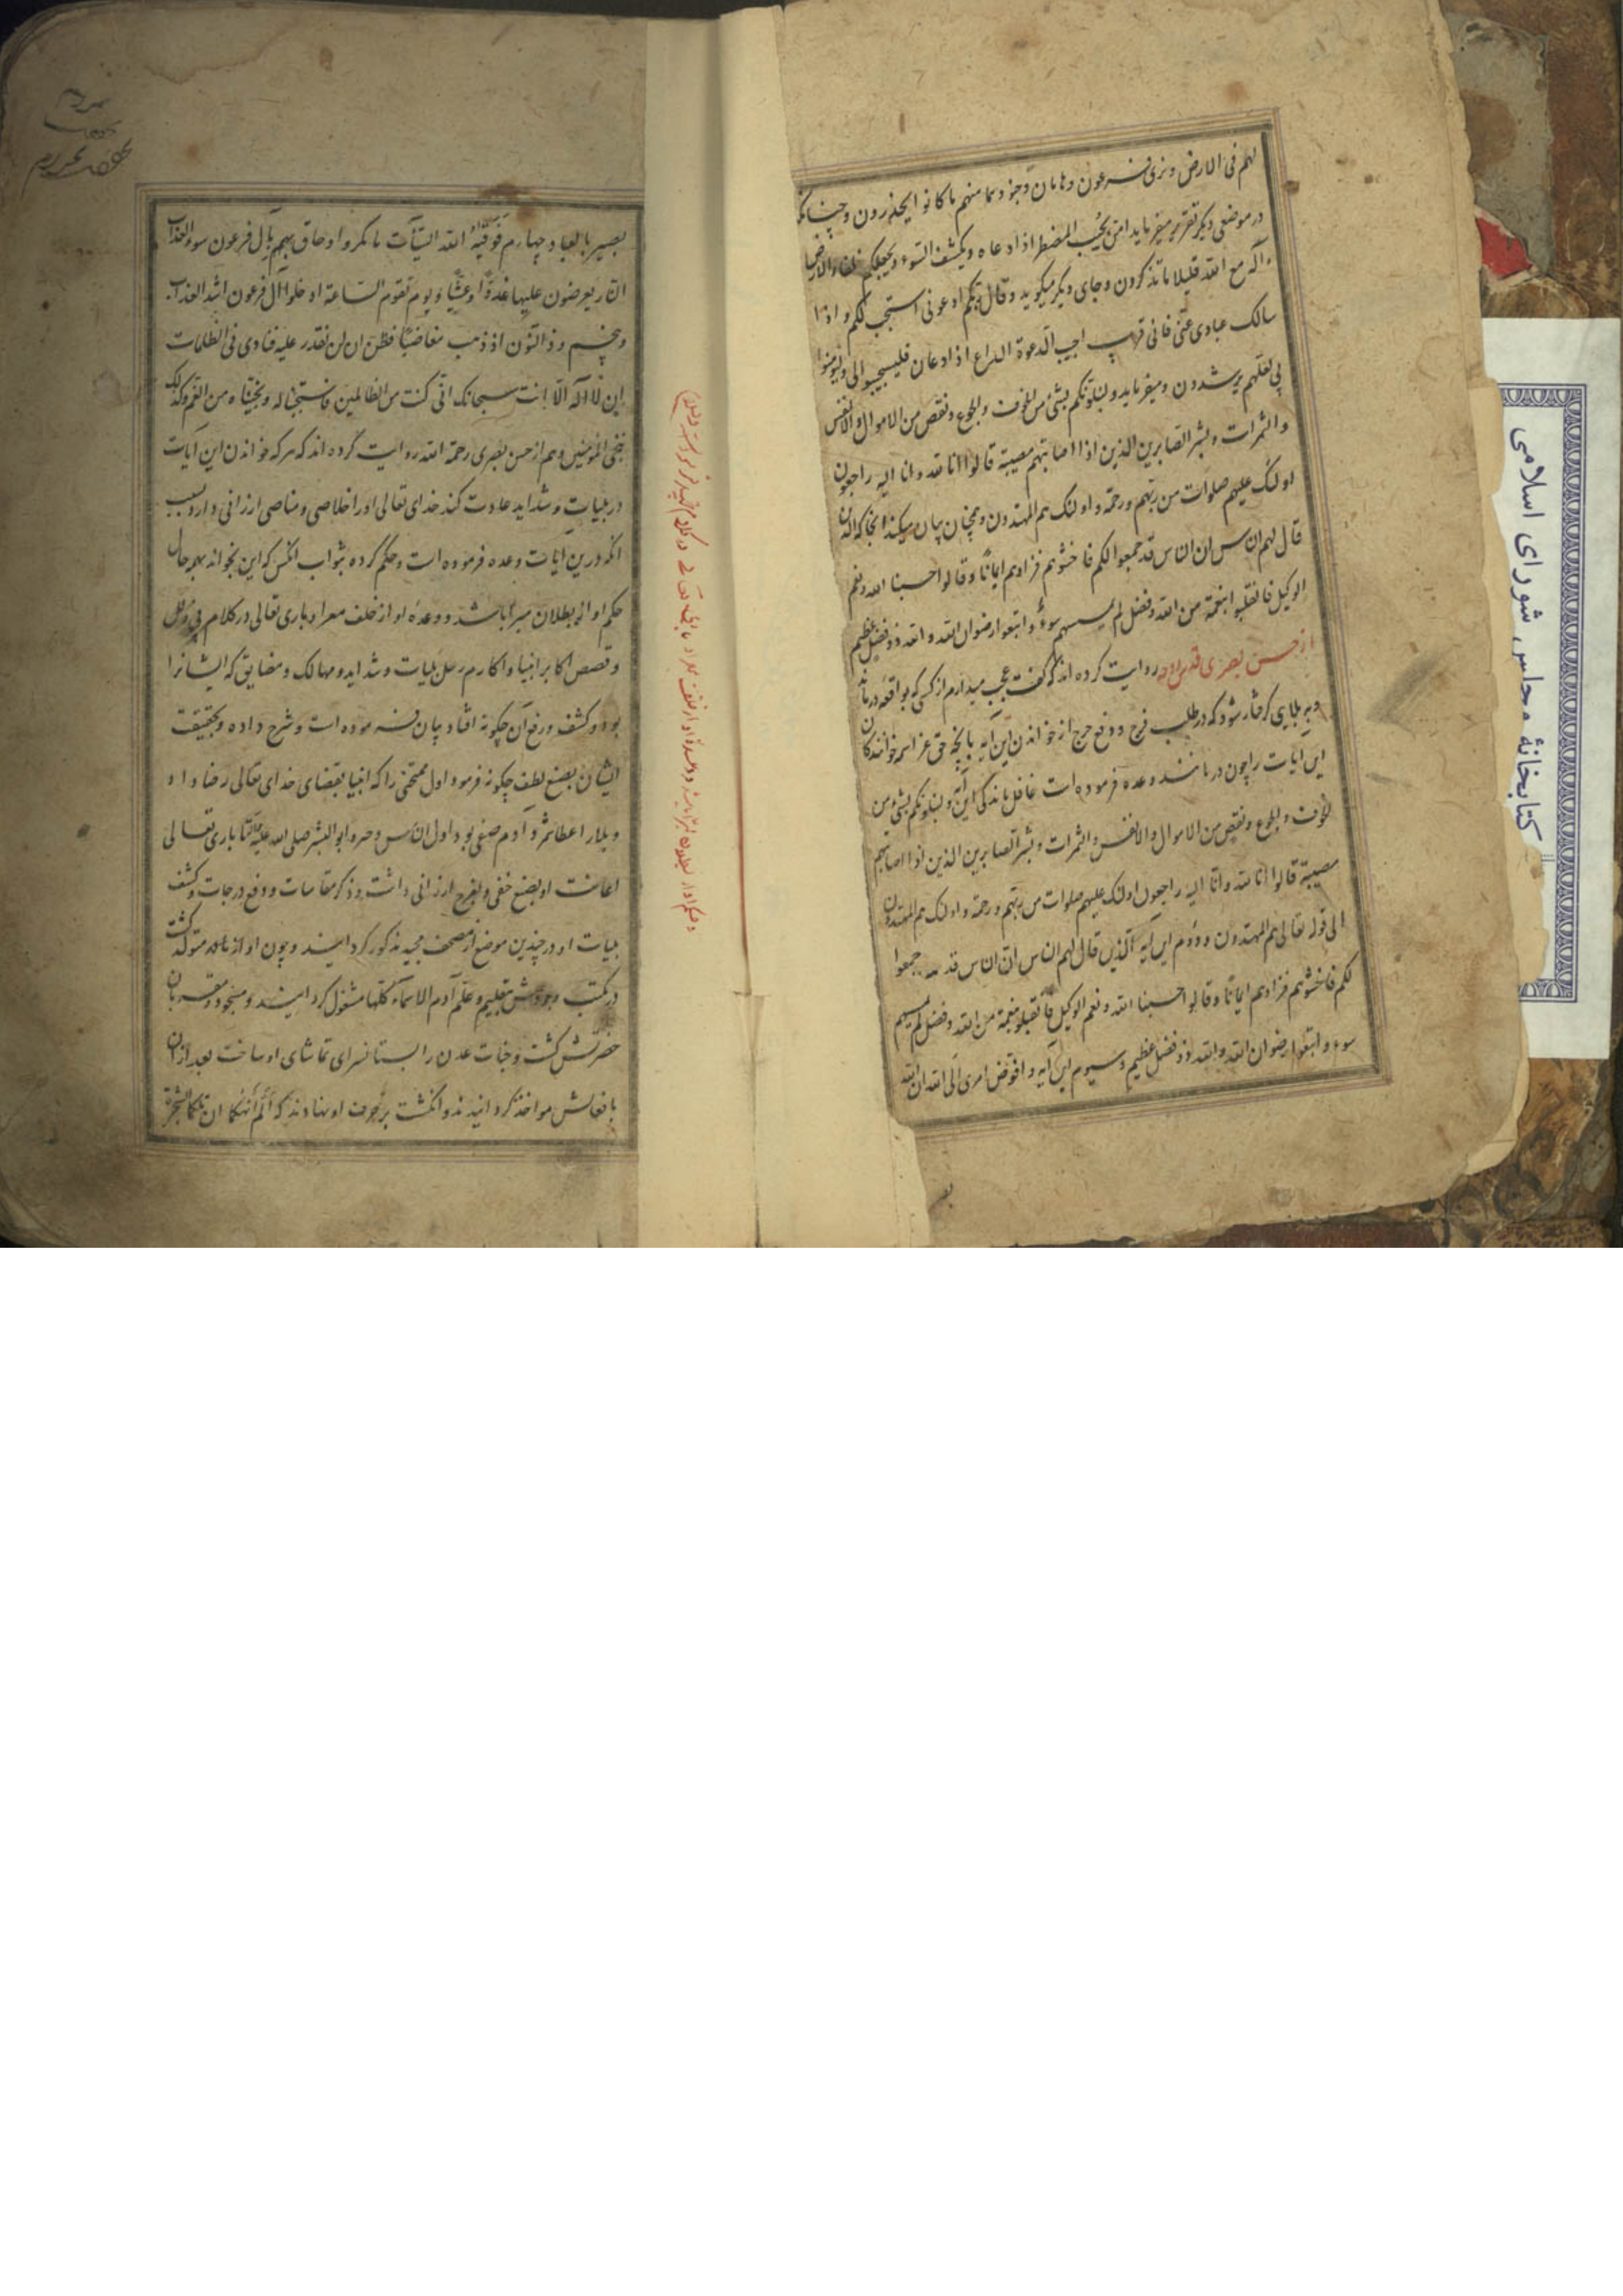 لهم فی الارض و نری فرعون و هامان و جنودهما منهم ما کانوا یحذرون و چنانکه
در موضعی دیکر تقریر میفرماید امن یجیب المضطر اذا دعاه و یکشف السوء و یجعلکم خلفاء الارض
ءاله مع الله قلیلا ما تذکرون و جای دیکر میکوید و قال ربکم ادعونی استجب لکم و اذا
سالک عبادی عنی فانی قریب اجیب الدعوة الداع اذا دعان فلیستجیبوا لی و لیومنوا
بی لعلهم یرشدون و میفرماید و لنبلونکم بشئ من الخوف و الجوع و نقص من الاموال و الانفس
و الثمرات و بشر الصابرین الذین اذا اصابتهم مصیبة قالوا انا لله و انا الیه راجعون
اولئک علیهم صلوات من ربهم و رحمة و اولئک هم المهتدون و همچنان بیان میکند انجا که الذین
قال لهم الناس ان الناس قد جمعوا لکم فاخشوهم فزادهم ایمانًا و قالوا حسبنا الله و نعم
الوکیل فانقلبوا بنعمة من الله و فضل لم یمسسهم سوءٌ و اتبعوا رضوان الله و الله ذو فضل عظیم
از حسن بصری روایت کرده اند که کفت عجب میدارم از کسی که بواقعه درماند
و ببلایی کرفتار شود که در طلب فرج و دفع حرج از خواندن این آیه بآنچه حق عز اسمه خوانندکان
این ایات را چون درمانند وعده فرموده است غافل ماند یکی این آیه و لنبلونکم بشئ من
الخوف و الجوع و نقص من الاموال و الانفس و الثمرات و بشر الصابرین الذین اذا اصابتهم
مصیبة قالوا انا لله و انا الیه راجعون اولئک علیهم صلوات من ربهم و رحمة و اولئک هم المهتدون
الی قوله تعالی هم المهتدون و دوم این آیه الذین قال لهم الناس ان الناس قد جمعوا
لکم فاخشوهم فزادهم ایمانًا و قالوا حسبنا الله و نعم الوکیل فانقلبوا بنعمة من الله و فضل لم یمسسهم
سوء و اتبعوا رضوان الله و الله ذو فضل عظیم و سیوم این آیه و افوض امری الی الله ان الله
بصیر بالعباد چهارم فوقیه الله السیئات ما مکروا و حاق بهم بآل فرعون سوء العذاب
النار یعرضون علیها غدوًا و عشیًا و یوم تقوم الساعة ادخلوا آل فرعون اشد العذاب
و پنجم و ذا النون اذ ذهب مغاضبًا فظن ان لن نقدر علیه فنادی فی الظلمات
ان لا اله الا انت سبحانک انی کنت من الظالمین فاستجبنا له و نجیناه من الغم و کذلک
ننجی المؤمنین و هم از حسن بصری رحمة الله روایت کرده اند که هرکه خواندن این آیات
در بلیات و شداید عادت کند خدای تعالی او را خلاصی و مناصی ارزانی دارد بسبب
انکه درین ایات وعده فرموده است و حکم کرده بثواب انکس که این بخواند بهمه حال
حکم او از بطلان مبرا باشد و وعده او از خلف معرا و باری تعالی در کلام
و قصص اکابر انبیا و اکارم رسل بلیات و شداید و مهالک و مضایق که ایشانرا
بود و کشف و رفع آن چکونه افتاد بیان فرموده است و شرح داده و بحقیقت
ایشان بصنع لطف چکونه فرمود اول ممتحنی را که انبیا بقضای خدای تعالی رضا داد
و بلا را عطا شمرد آدم صفی بود اول الناس و ابو البشر صلی الله علیه تا باری تعالی
اعانت او بصنع خفی و بفرج ارزانی داشت و ذکر مقاسات و رفع درجات و کشف
بلیات او در چندین موضع از مصحف مجید مذکور کردانید و چون او از متولد کشت
در مکتب وجودش بتعلیم و علم آدم الاسماء کلها مشغول کردانیند و مسجود مقربان
حضرتش کشت و جنات عدن را بستانسرای تماشای او ساخت بعد از ان
بافعالش مواخذ کردانیدند و انکشت برحرف او نهادند که الم انهکما ان تلکما الشجرة
کتابخانهٔ مجلس شورای اسلامی